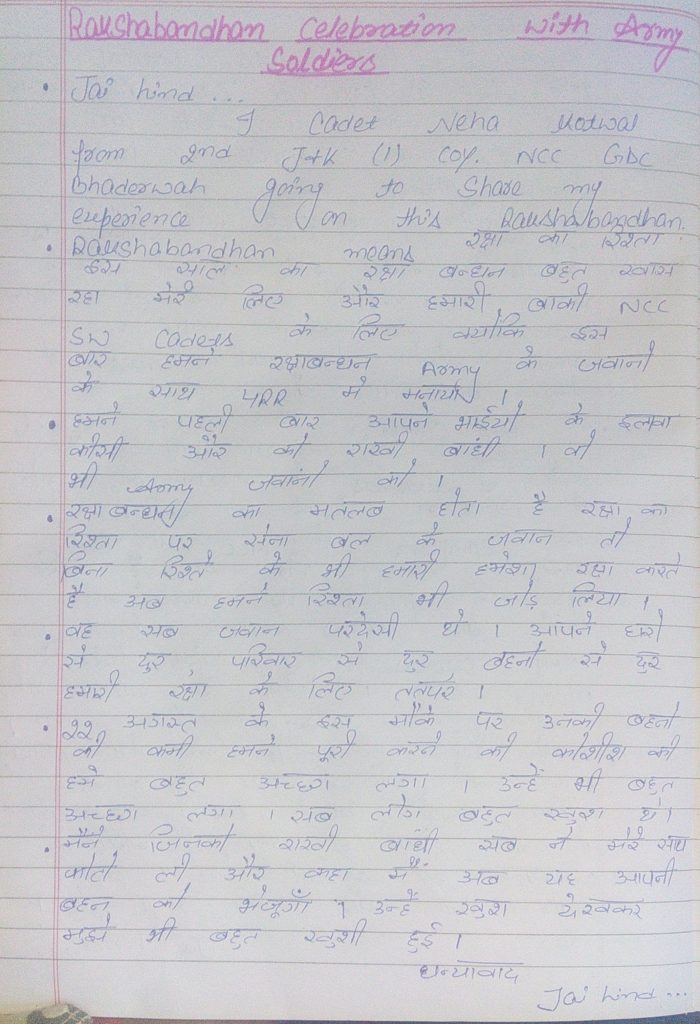 Raushabandhan Celebration with Army
Soldiers
• Jai hind ...
I Cadet Neha Kotwal
from 2nd J&K (I) COY. NCC GDC
Bhaderwah going to Share my
experience on this Raushabandhan.
• Raushabandhan means रक्षा का रिश्ता
इस साल का रक्षा बन्धन बहुत खास
रहा मेरे लिए और हमारी बाकी NCC
SW Cadets के लिए क्योंकि इस
बार हमने रक्षाबन्धन Army के जवानो
के साथ 4RR मे मनाया ।
• हमने पहली बार आपने भाईयो के इलावा
कीसी और को राखी बांधी । वो
भी Army जवानो को ।
• रक्षा बन्धन का मतलब होता है रक्षा का
रिश्ता पर सेना बल के जवान तो
बिना रिश्ते के भी हमारी हमेशा रक्षा करते
है अब हमने रिश्ता भी जोड़ लिया ।
• वह सब जवान परदेसी थे । आपने घरो
से दुर परिवार से दुर बहनो से दुर
हमारी रक्षा के लिए ततपर ।
• 22 अगस्त के इस मौके पर उनकी बहनो
की कमी हमने पूरी करने की कोशीश की
हमे बहुत अच्छा लगा । उन्हें भी बहुत
अच्छा लगा । सब लोग बहुत खुश थे।
• मैने जिनको राखी बांधी सब ने मेरे साथ
फोटो ली और कहा मैं अब यह आपनी
बहन को भेजूगाँ । उन्हें खुश देखकर
मुझे भी बहुत खुशी हुई ।
धन्यावाद
Jai hind ...